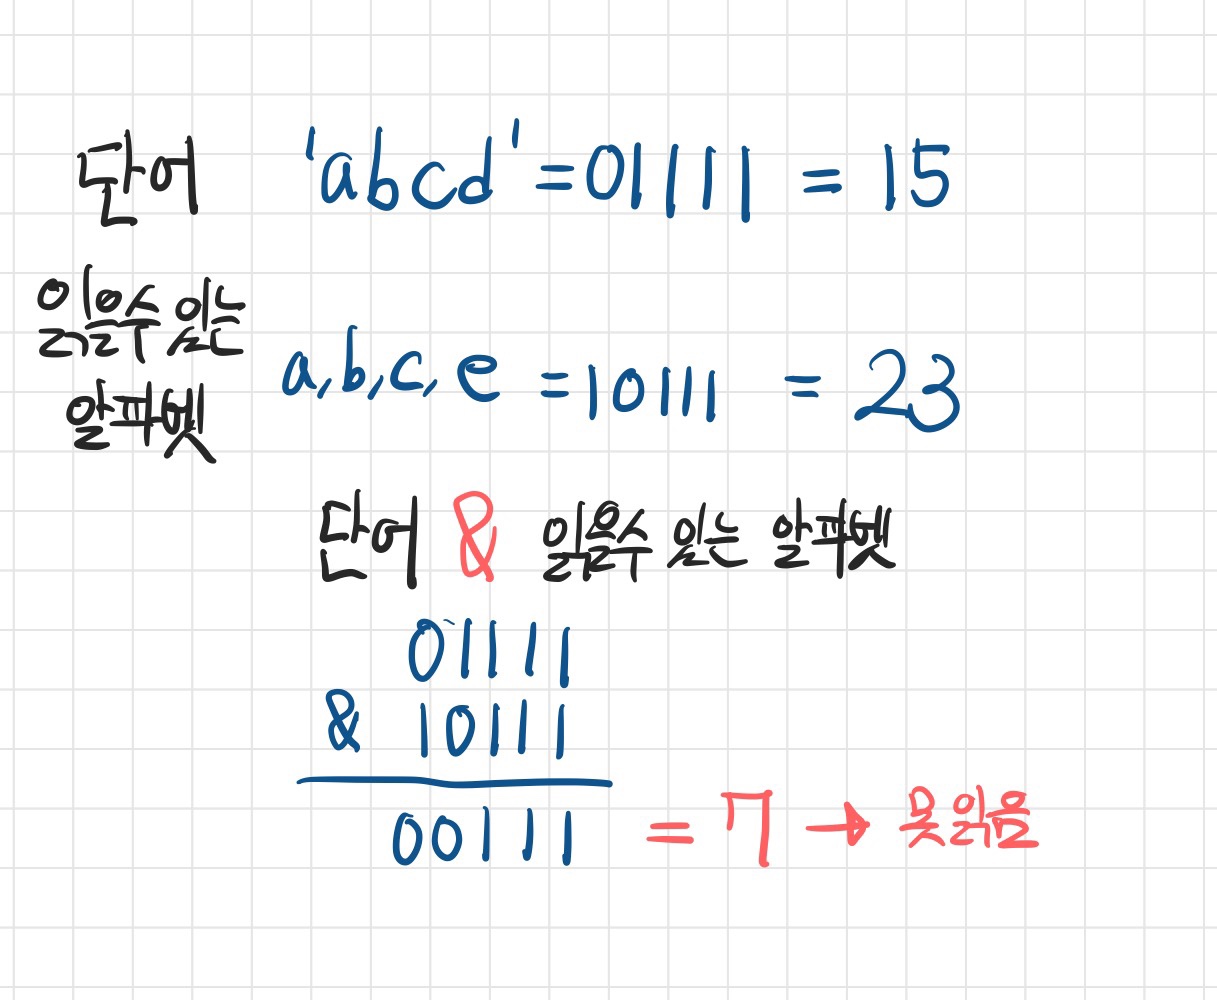 단어 'abcd' = 01111 = 15
읽을수 있는
알파벳 a, b, c, e = 10111 = 23
단어 & 읽을수 있는 알파벳
01111
& 10111
00111 = 7 → 못읽음